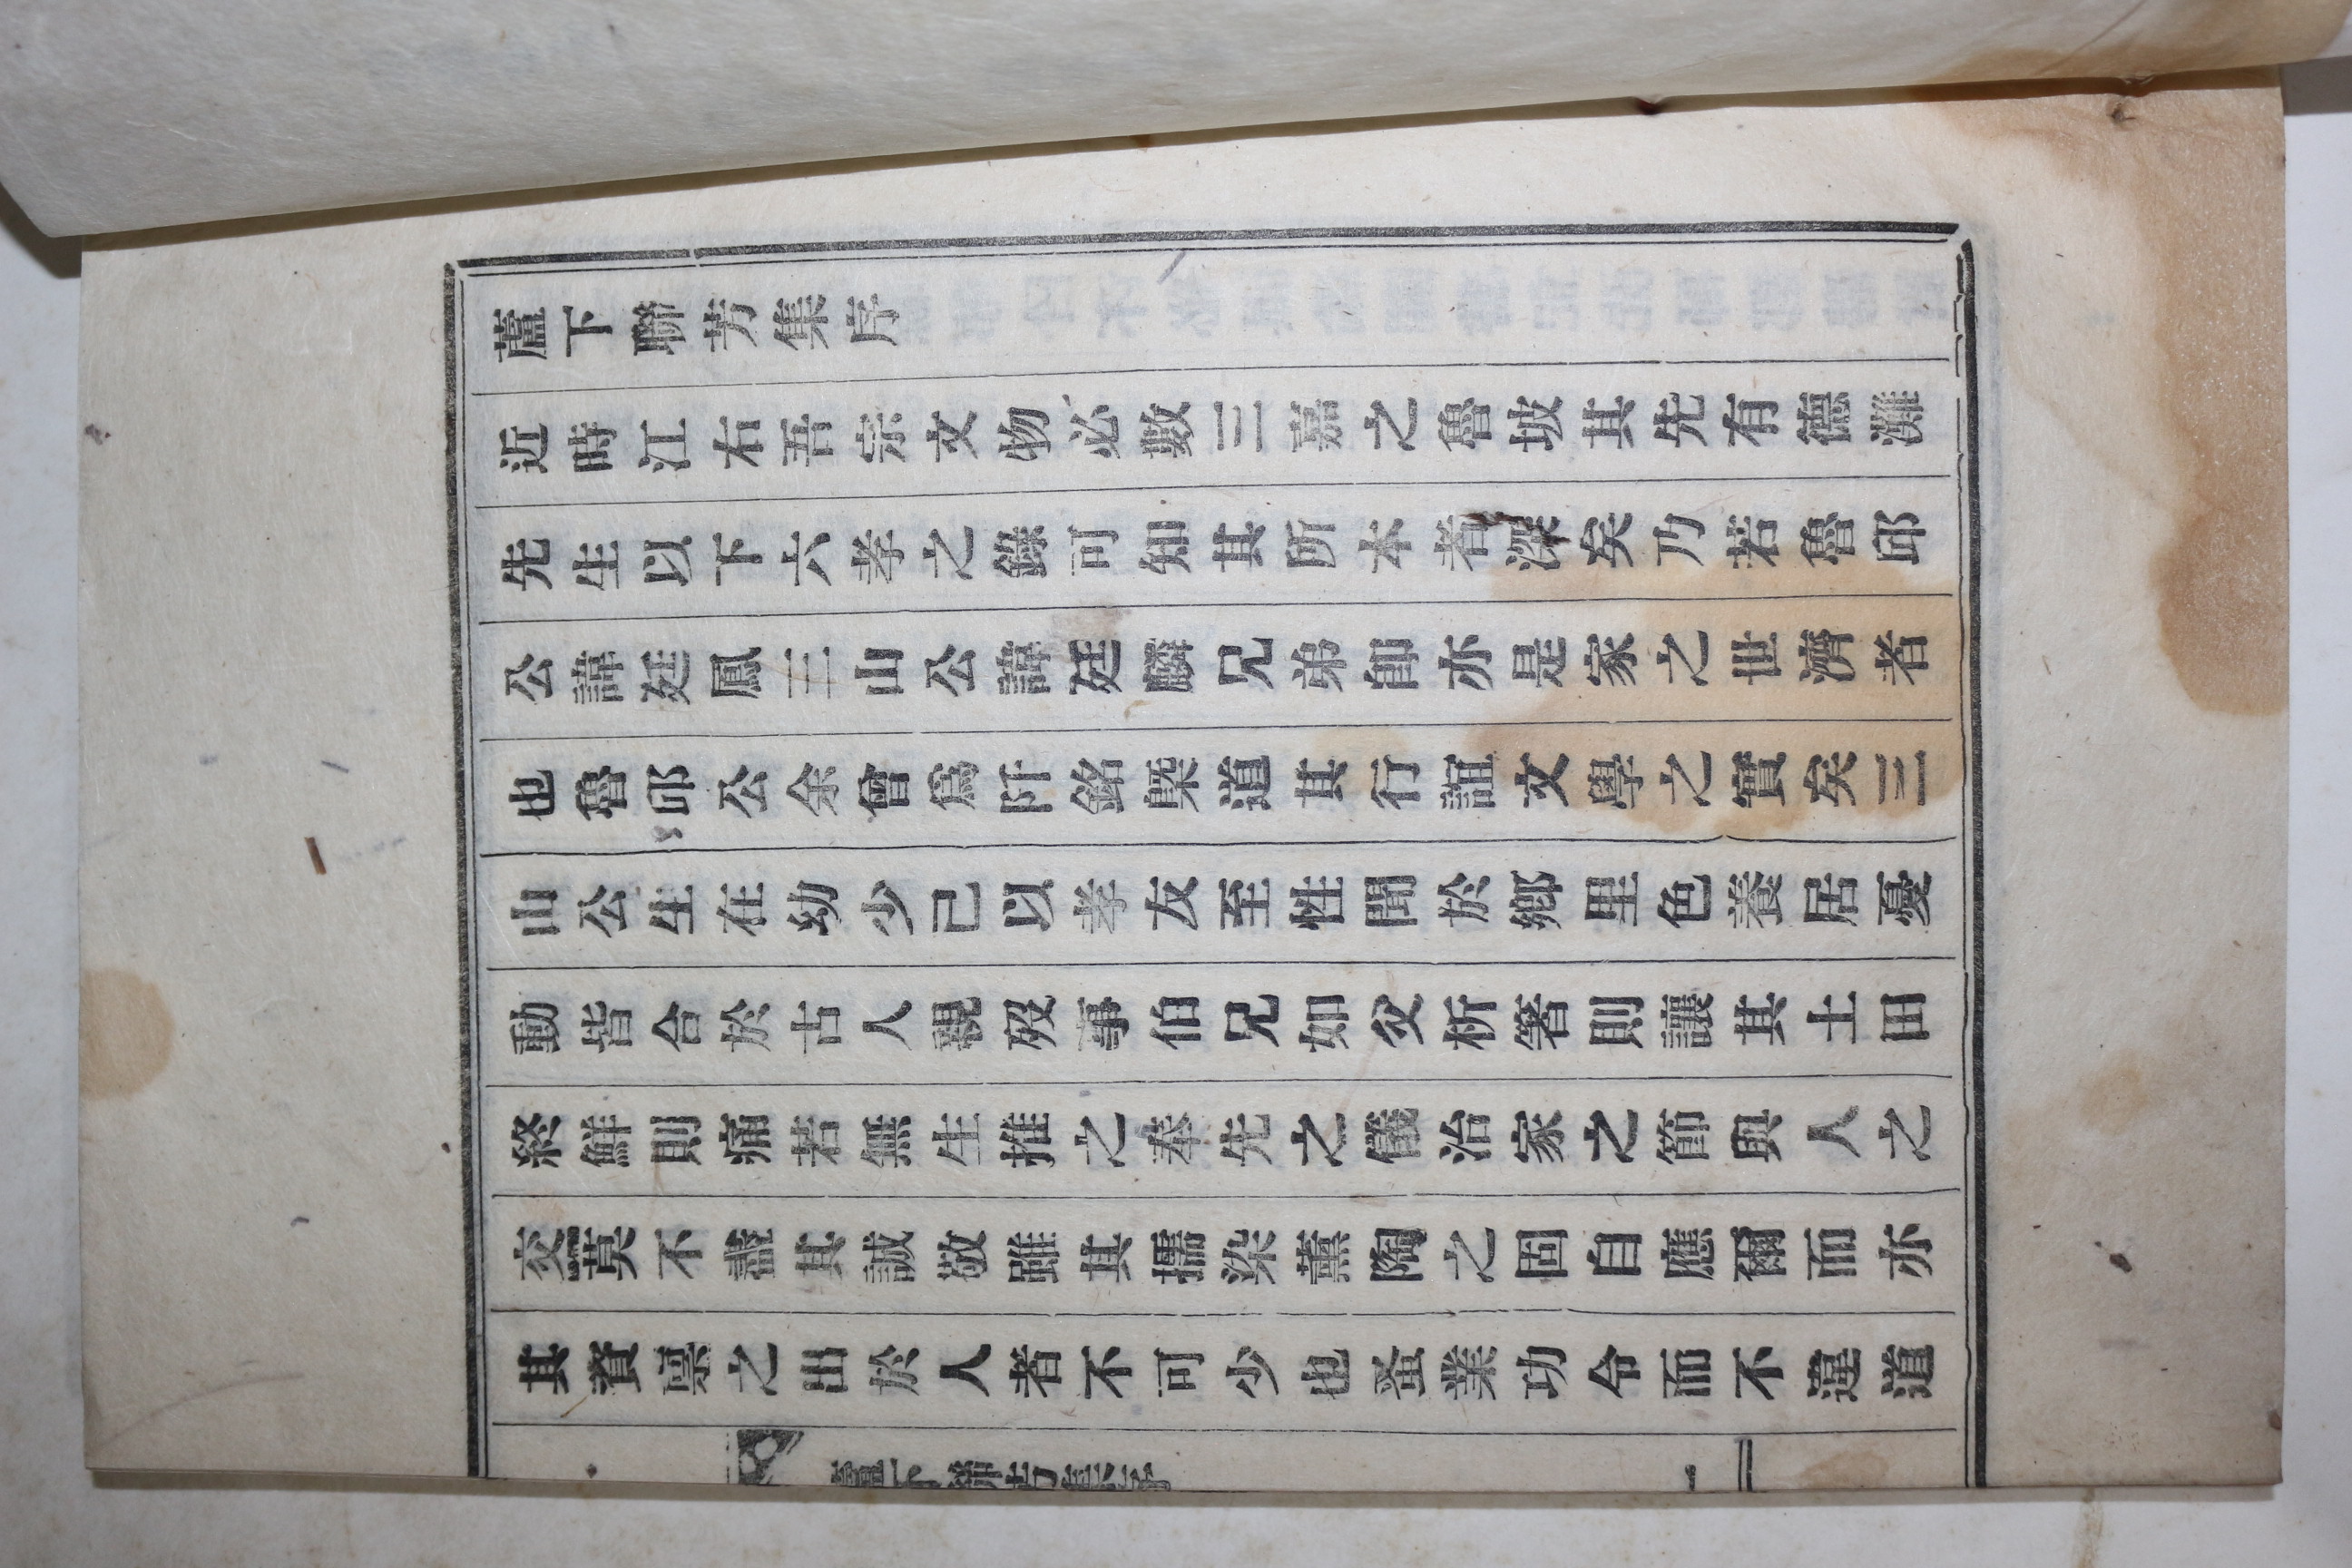 蘆下聯芳集序
近時江右吾宗文物必數三嘉之魯坡其先有德灘
先生以下六孝之錄可知其所本者深矣乃若魯邱
公諱廷鳳三山公諱廷麟兄弟卽亦是家之世濟者
也魯邱公余曾爲阡銘槩道其行誼文學之實矣三
山公生在幼少己以孝友至性聞於鄕里色養居憂
動皆合於古人親歿事伯兄如父析箸則讓其土田
終鮮則痛若無生推之奉先之儀治家之節與人之
交莫不盡其誠敬雖其擩染薰陶之固自應爾而亦
其資禀之出於人者不可少也蚤業功令而不違道
蘆下聯芳集序
一